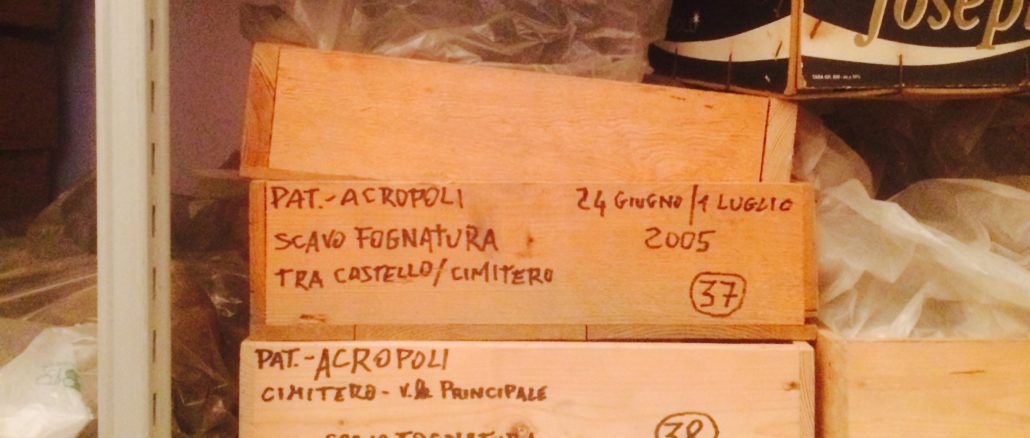 Josep
PAT.-ACROPOLI 24 GIUGNO/1 LUGLIO
SCAVO FOGNATURA 2005
TRA CASTELLO/CIMITERO
37
PAT.-ACROPOLI
CIMITERO - V.le PRINCIPALE
SCAVO FOGNATURA 38